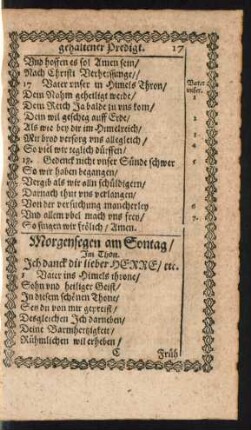 gehaltener Predigt. 17
Vnd hoffen es sol Amen sein/
Nach Christi Verheissunge//
17 Vater unser in Himels Thron/
Vater
unser.
Dein Nahm geheiligt werde/
1
Dein Reich Ja balde zu uns kom/
2
Dein wil gescheg auff Erde/
Als wie bey dir im Himelreich/
Mit brod versorg uns allegleich/
So viel wir teglich dürffen/
18. Gedenck nicht unser Sünde schwer
So wir haben begangen/
Vergib als wir alln schüldigern/
Darnach thut uns verlangen/
Von der versuchung mancherley
6
Vnd allem vbel mach uns frey/
7.
So singen wir frölich/ Amen.
Morgensegen am Sontag/
Im Thon.
Ich danck dir lieber HERRE/ etc.
1 Vater ins Himels throne/
Sohn und heiliger Geist/
In diesem schönen Thone/
Sey du von mir gepreist/
Desgleichen Ich darneben/
Deine Barmhertzigkeit/
Rühmlichen wil erheben/
C Früh